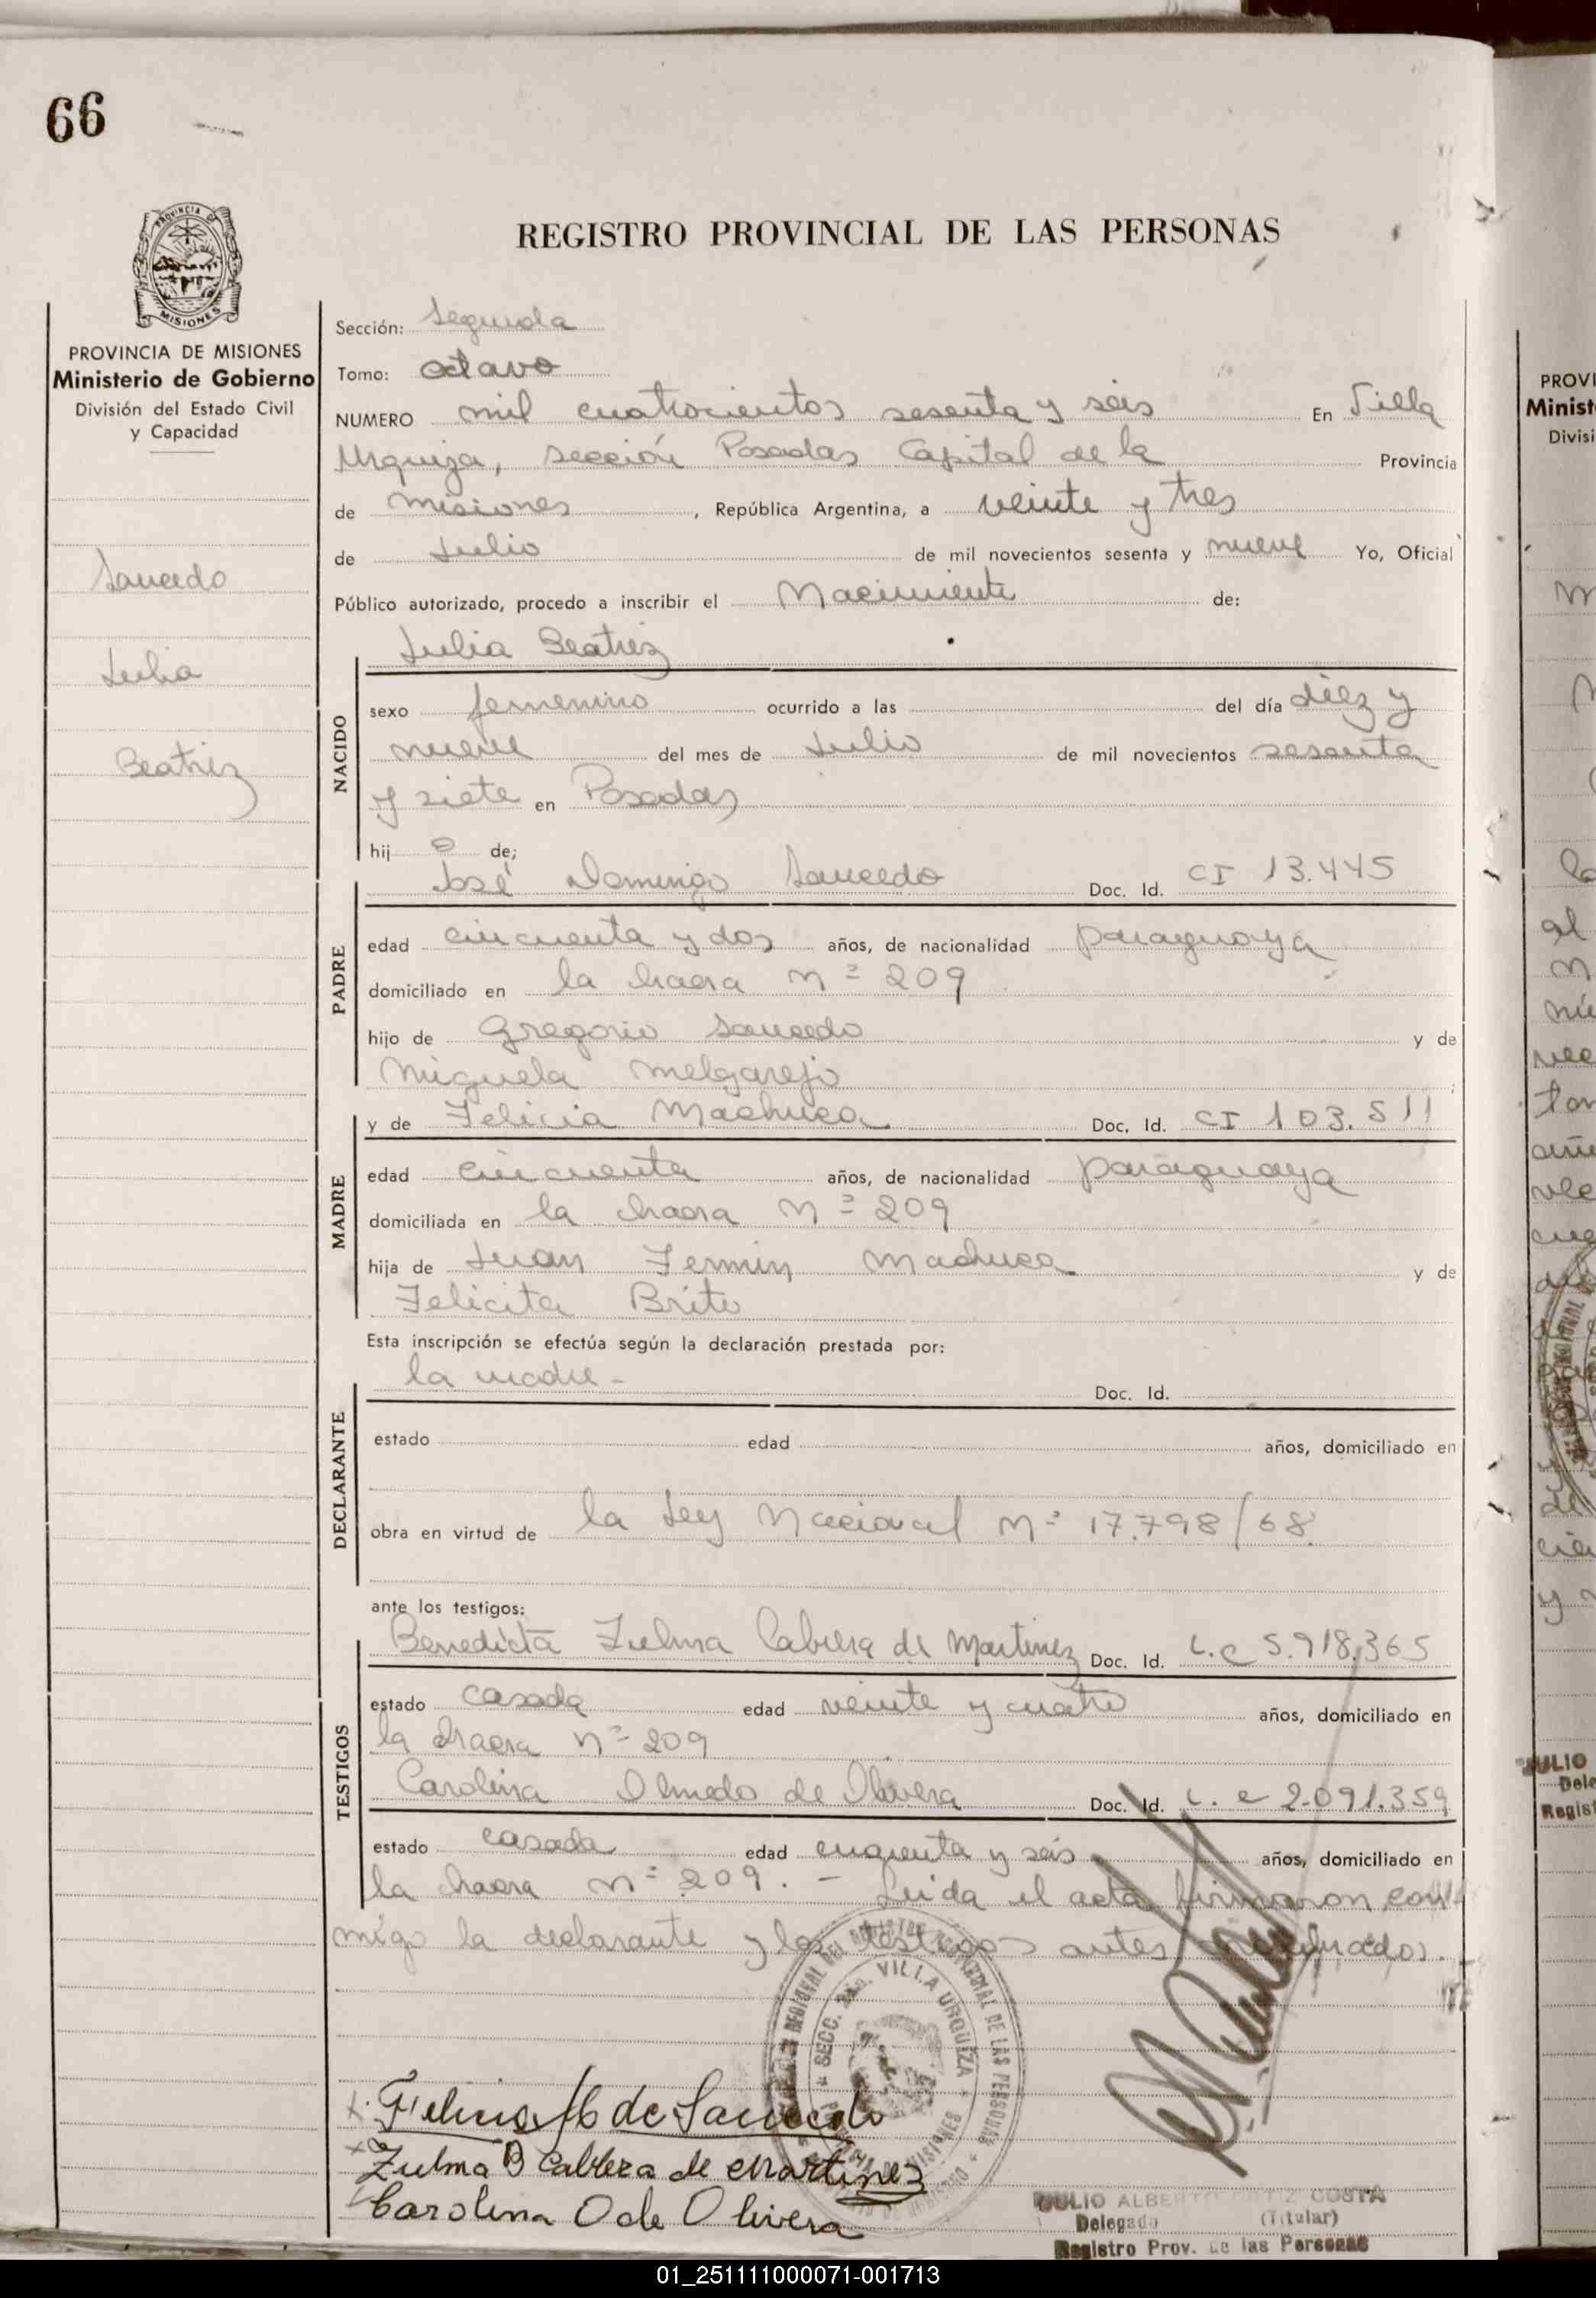 66
PROVINCIA DE
MISIONES
REGISTRO PROVINCIAL DE LAS PERSONAS
PROVINCIA DE MISIONES
Ministerio de Gobierno
División del Estado Civil
y Capacidad
Saucedo
Julia
Beatriz
Sección: Segunda
Tomo: octavo
NUMERO mil cuatrocientos sesenta y seis En Villa
Urquiza, sección Posadas Capital de la Provincia
de Misiones, República Argentina, a veinte y tres
de Julio de mil novecientos sesenta y nueve Yo, Oficial
Público autorizado, procedo a inscribir el Nacimiento de:
Julia Beatriz
NACIDO
sexo femenino ocurrido a las del día diez y
nueve del mes de Julio de mil novecientos sesenta
y siete en Posadas
hij de;
PADRE
José Domingo Saucedo Doc. Id. CI 13.445
edad cincuenta y dos años, de nacionalidad paraguaya
domiciliado en la chacra nº 209
hijo de Gregorio Saucedo y de
Miguela Melgarejo
MADRE
y de Felicia Machuca Doc. Id. CI 103.511
edad cincuenta años, de nacionalidad paraguaya
domiciliada en la chacra nº 209
hija de Juan Fermin Machuca y de
Felicita Brito
Esta inscripción se efectúa según la declaración prestada por:
DECLARANTE
la madre - Doc. Id.
estado edad años, domiciliado en
obra en virtud de la Ley Nacional nº 17.798/68
ante los testigos:
TESTIGOS
Benedicta Zulma Cabrera de Martinez Doc. Id. L.C 5.918.365
estado casada edad veinte y cuatro años, domiciliado en
la chacra nº 209
Carolina Olmedo de Olivera Doc. Id. L.C 2.091.359
estado casada edad cinquenta y seis años, domiciliado en
la chacra nº 209. - Leida el acta firmaron con
migo la declarante y los testigos antes nombrados.
SECC. 2da. VILLA URQUIZA
REGISTRO PROVINCIAL DE LAS PERSONAS
M. de Saucedo
Zulma B Cabrera de Martinez
Carolina O de Olivera
JULIO ALBERTO ORTIZ COSTA
Delegado (Titular)
Registro Prov. de las Personas
PROVI
Minist
Divisi
JULIO
Dele
Regist
01_251111000071-001713